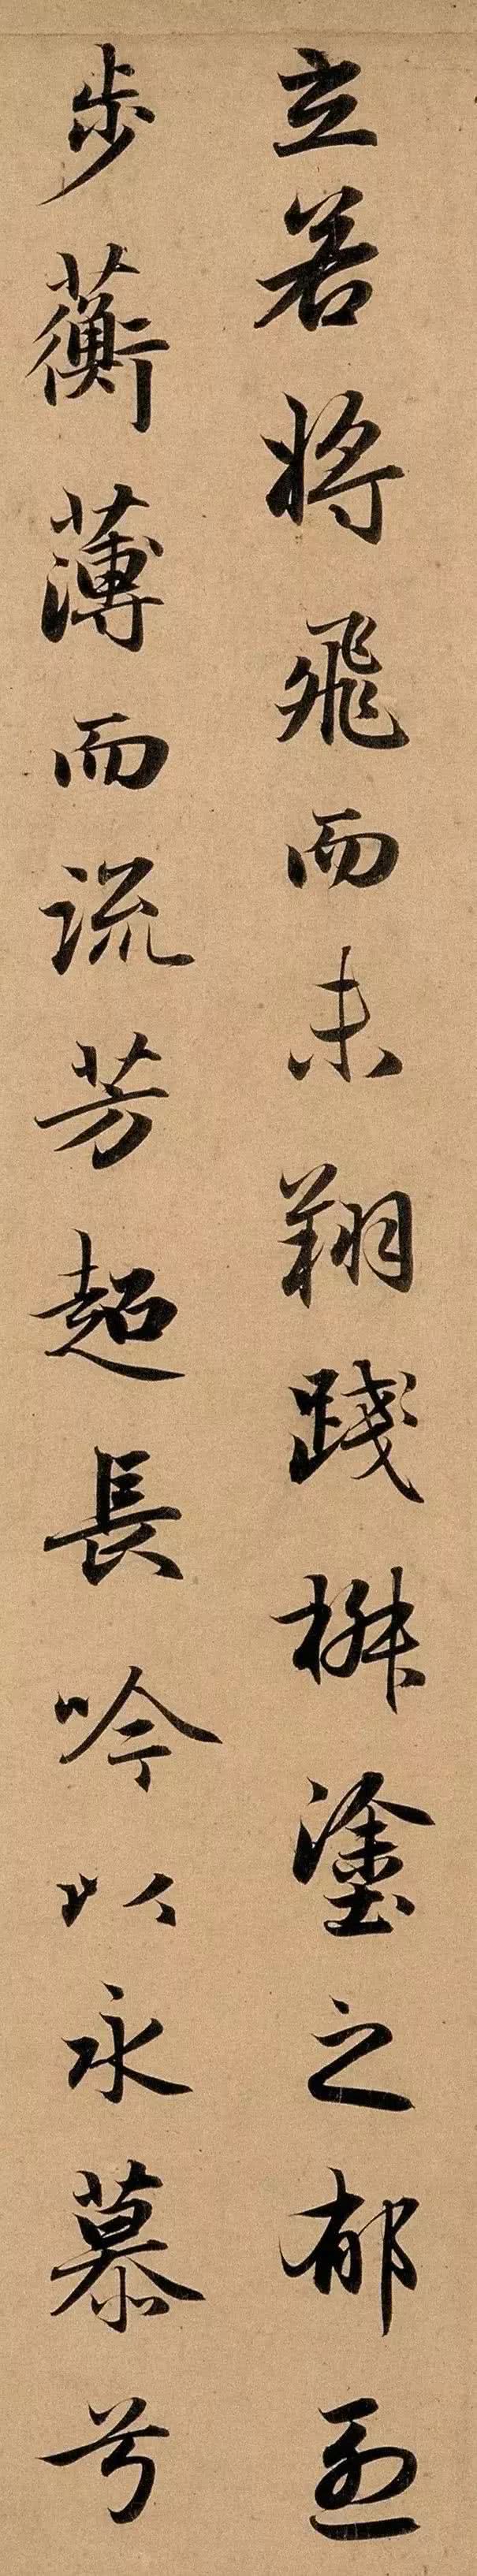 立若將飛而未翔踐椒塗之郁烈
步蘅薄而流芳超長吟以永慕兮